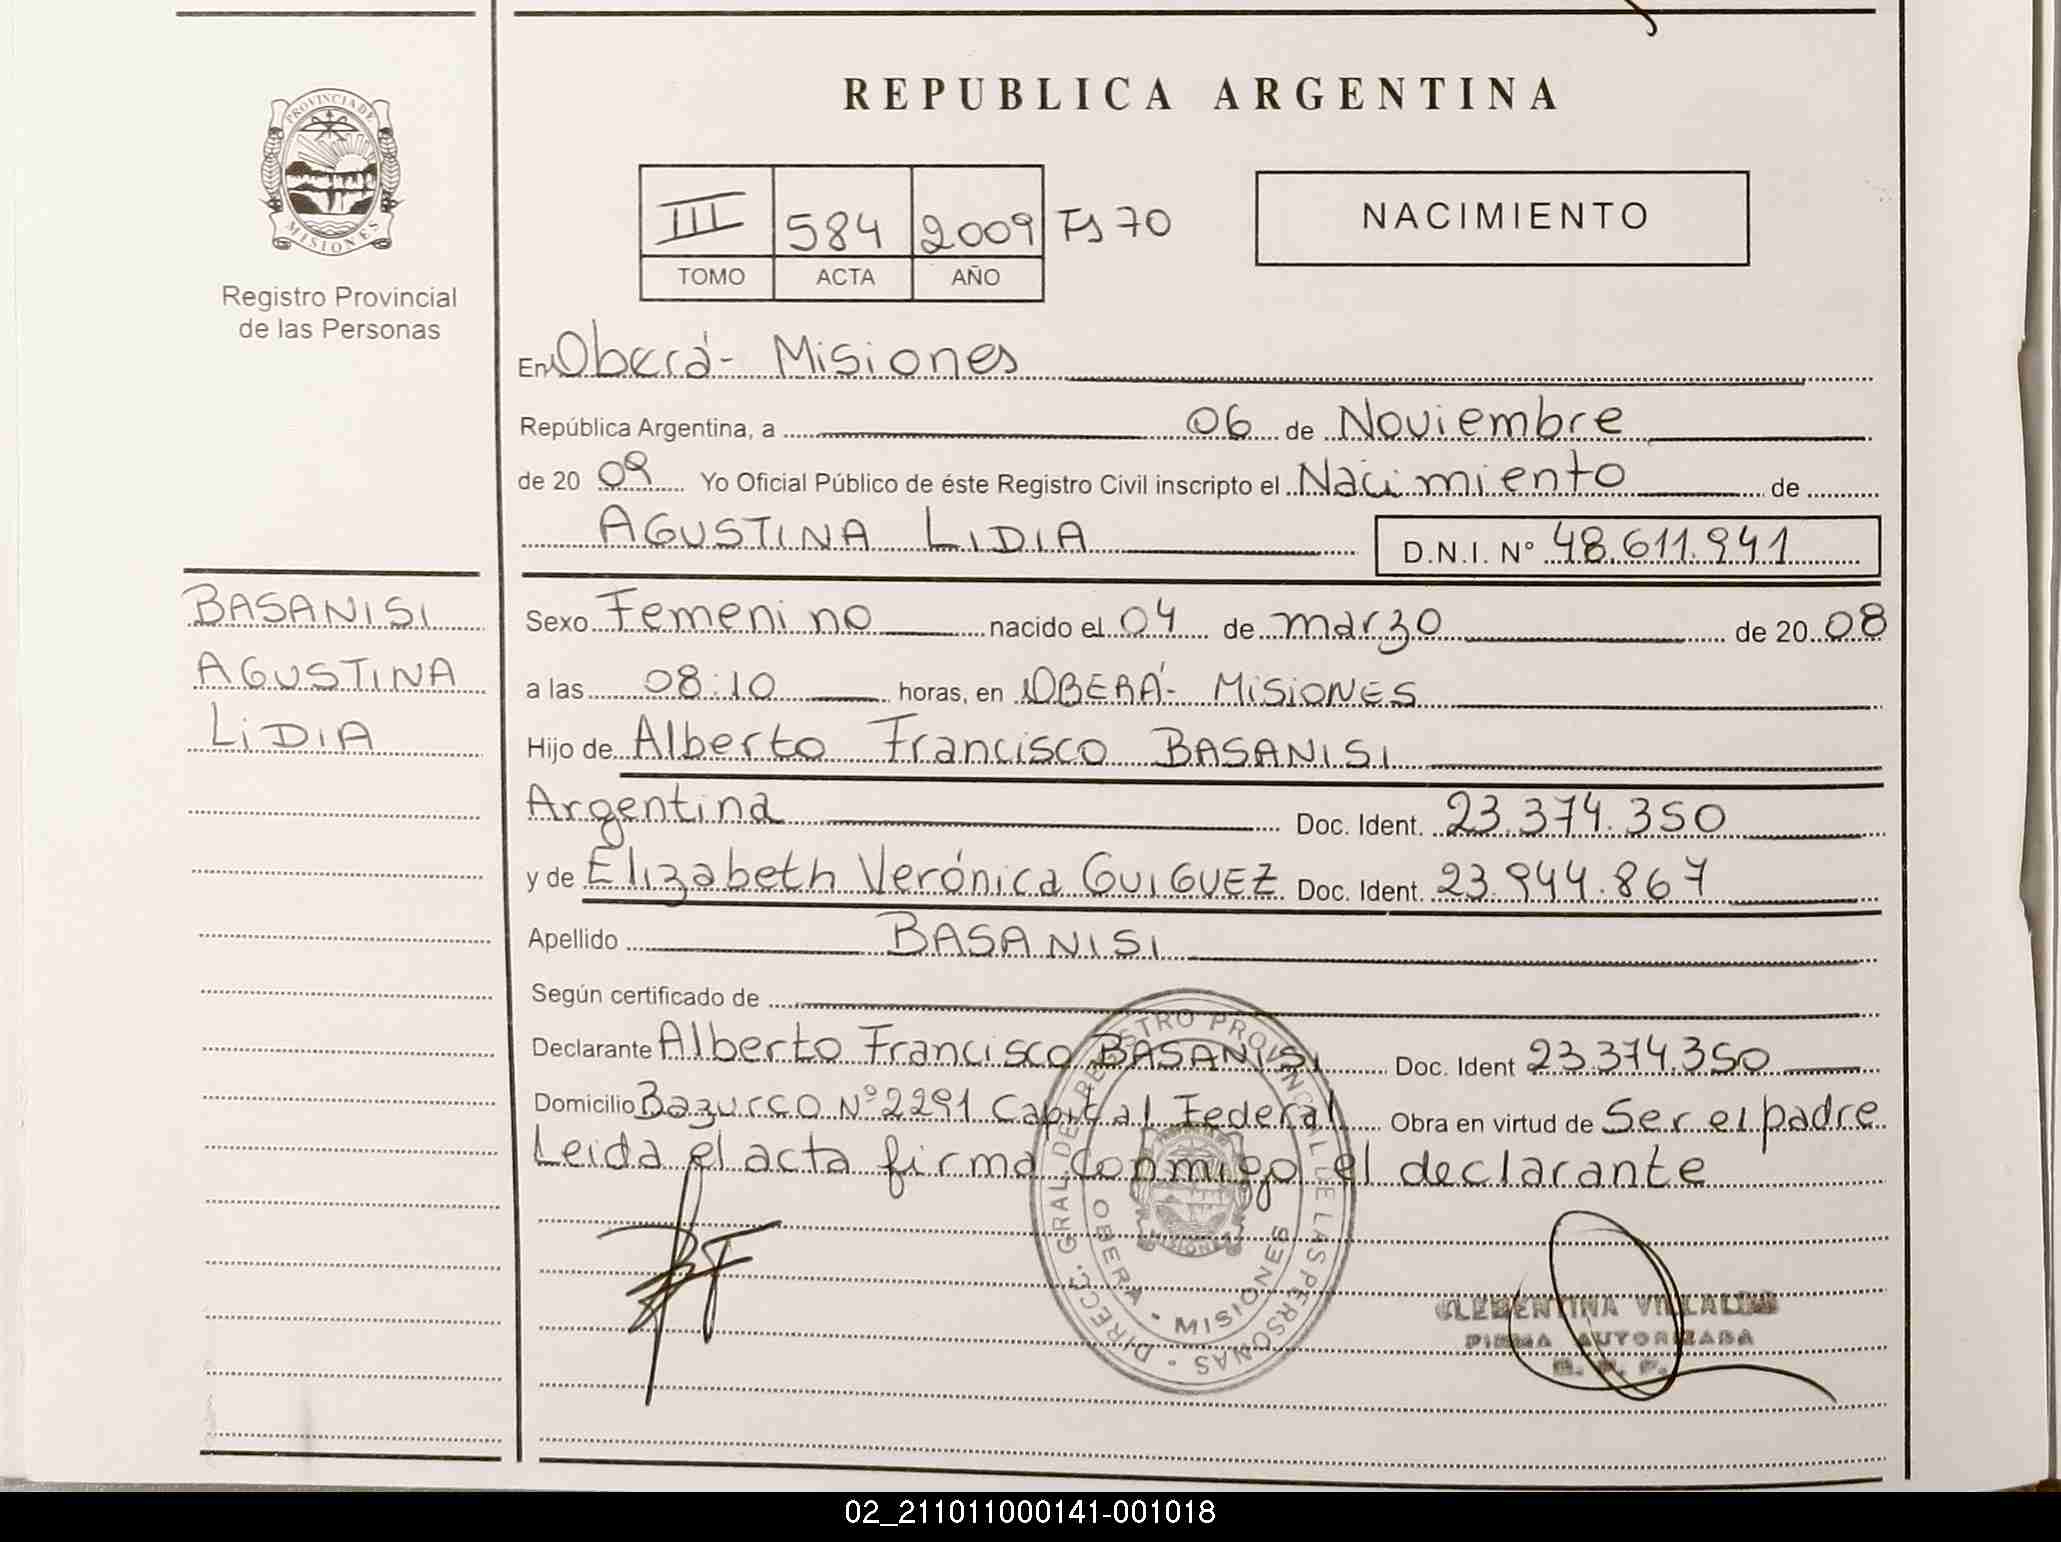 REPUBLICA ARGENTINA
PROVINCIA DE
MISIONES
Registro Provincial
de las Personas
III 584 2009 Fs 70
TOMO ACTA AÑO
NACIMIENTO
En Oberá - Misiones
República Argentina, a 06 de Noviembre
de 20 09 Yo Oficial Público de éste Registro Civil inscripto el Nacimiento de
AGUSTINA LIDIA D.N.I. Nº 48.611.941
BASANISI
AGUSTINA
LIDIA
Sexo Femenino nacido el 04 de marzo de 20 08
a las 08:10 horas, en OBERÁ - MISIONES
Hijo de Alberto Francisco BASANISI
Argentina Doc. Ident. 23.374.350
y de Elizabeth Verónica GUIGUEZ Doc. Ident. 23.944.867
Apellido BASANISI
Según certificado de
Declarante Alberto Francisco BASANISI Doc. Ident 23.374.350
Domicilio Bazurco Nº 2291 Capital Federal Obra en virtud de Ser el padre
Leida el acta firma conmigo el declarante
DIRECC. GRAL. DE REGISTRO PROVINCIAL DE LAS PERSONAS
OBERA - MISIONES
MISIONES
CLEMENTINA VILLALBA
FIRMA AUTORIZADA
02_211011000141-001018